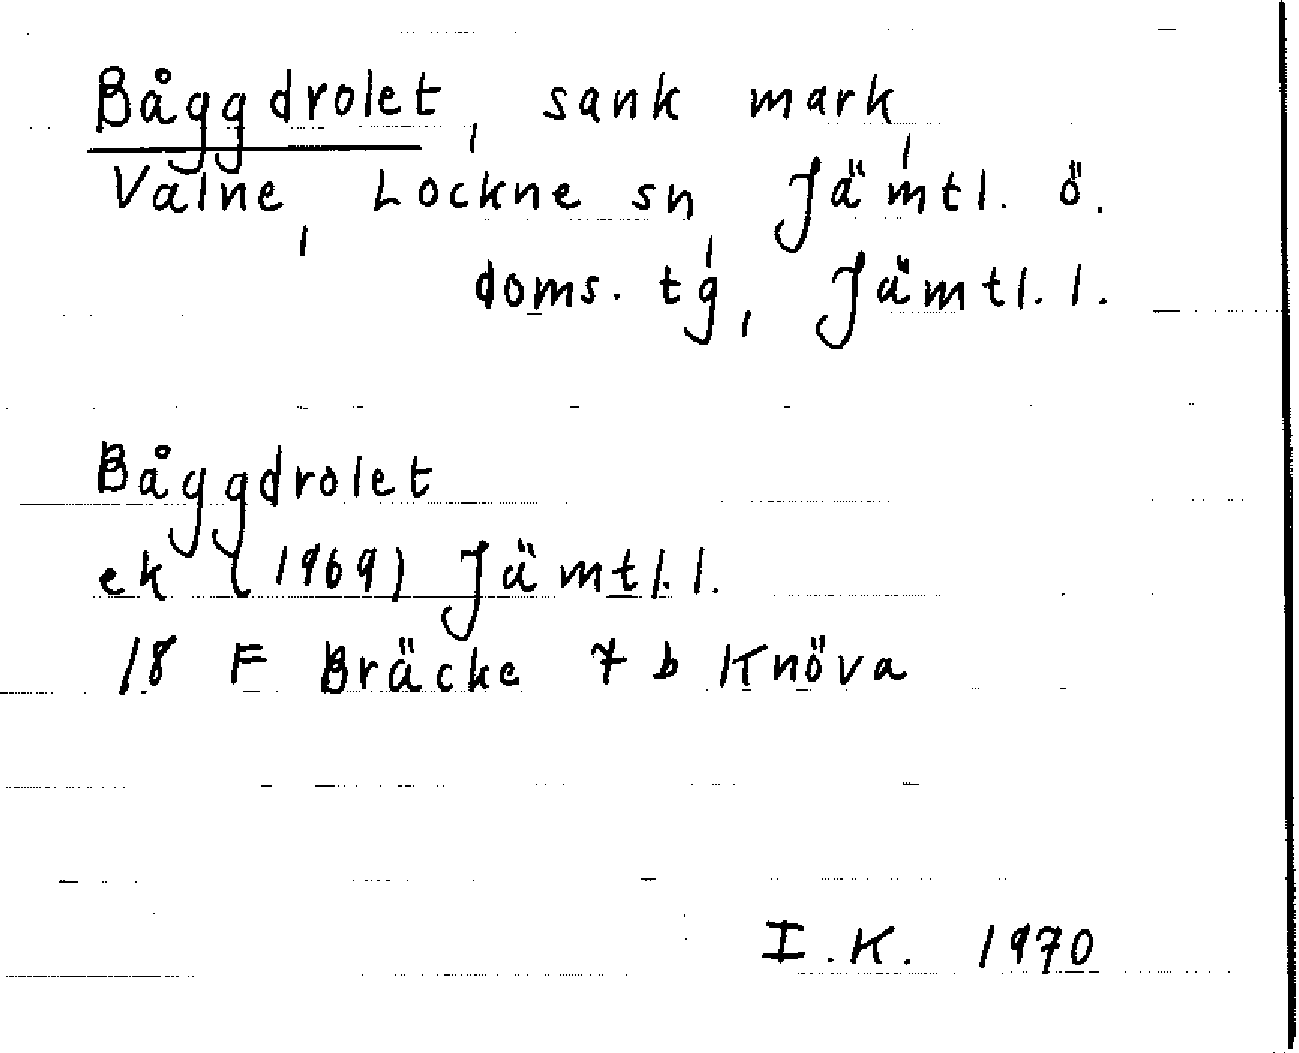 Båggdrolet, sank mark,
Valne, Lockne sn, Jämtl. ö.
doms. tg, Jämtl. l.
Båggdrolet
ek (1969) Jämtl. l.
18 F Bräcke 7 b Knöva
I.K. 1970